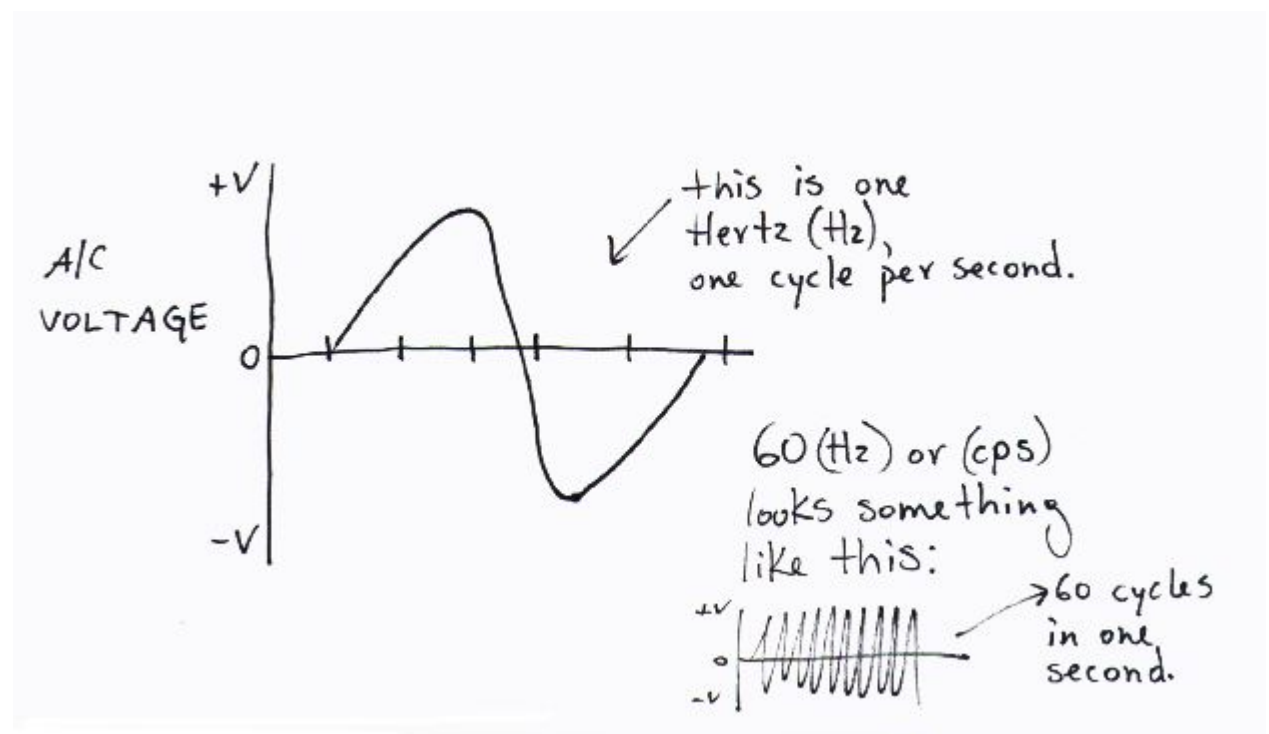 +V
A/C
VOLTAGE
0
-V
this is one
Hertz (Hz),
one cycle per second.
60 (Hz) or (cps)
looks something
like this:
+V
0
-V
60 cycles
in one
second.